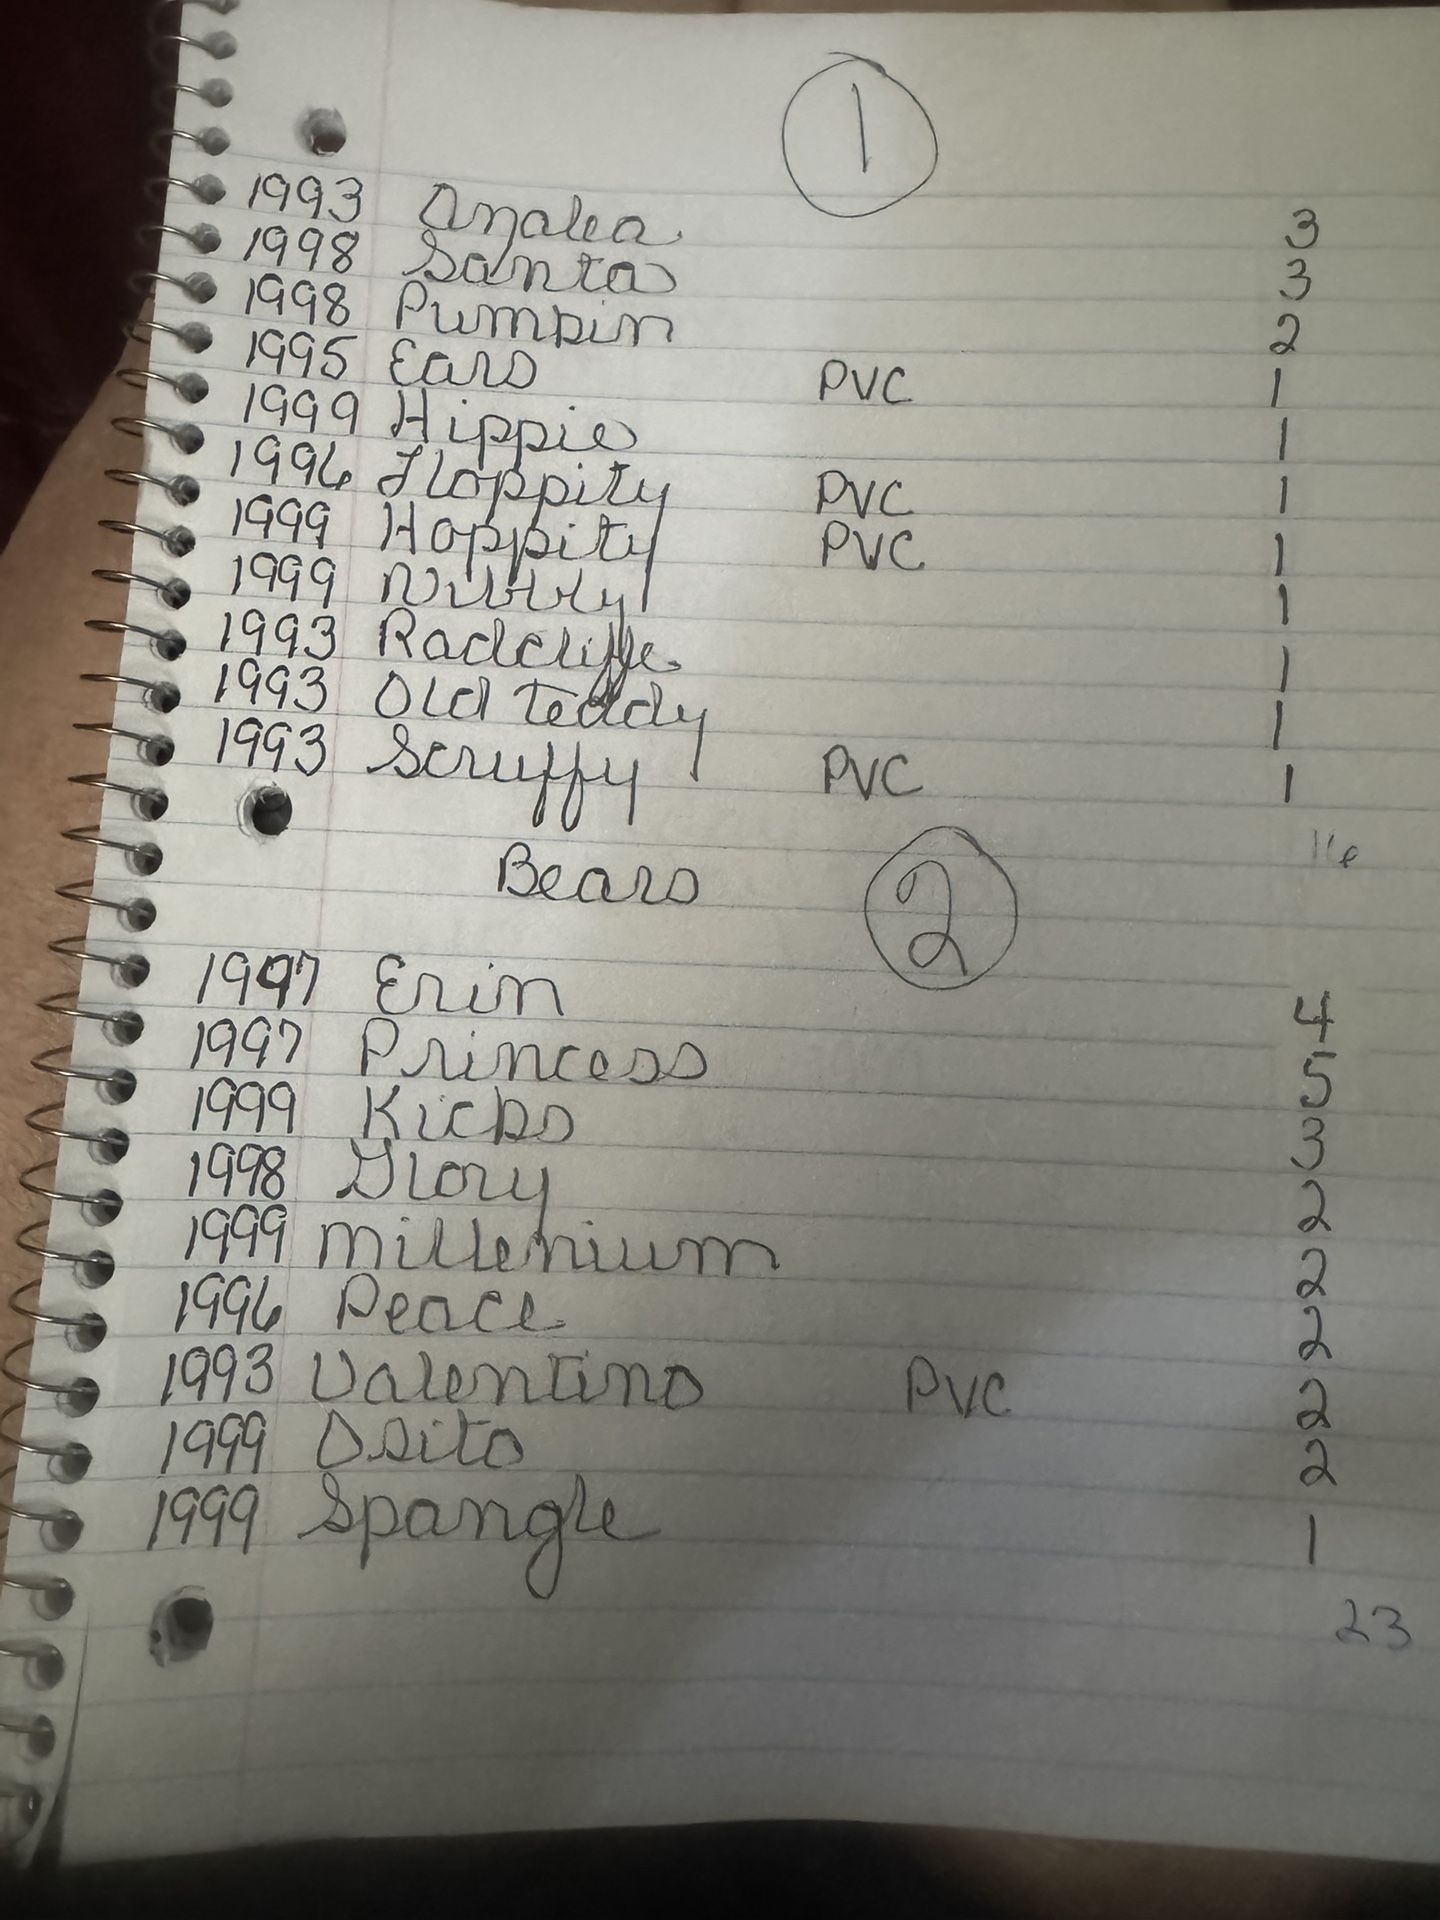 1
1993 Azalea 3
1998 Santa 3
1998 Pumpkin 2
1995 Ears PVC 1
1999 Hippie 1
1996 Floppity PVC 1
1999 Hoppity PVC 1
1999 Nibbly 1
1993 Radcliffe 1
1993 Old teddy 1
1993 Scruffy PVC 1
16
Bears 2
1997 Erin 4
1997 Princess 5
1999 Kicks 3
1998 Glory 2
1999 Millenium 2
1996 Peace 2
1993 Valentino PVC 2
1999 Osito 2
1999 Spangle 1
23